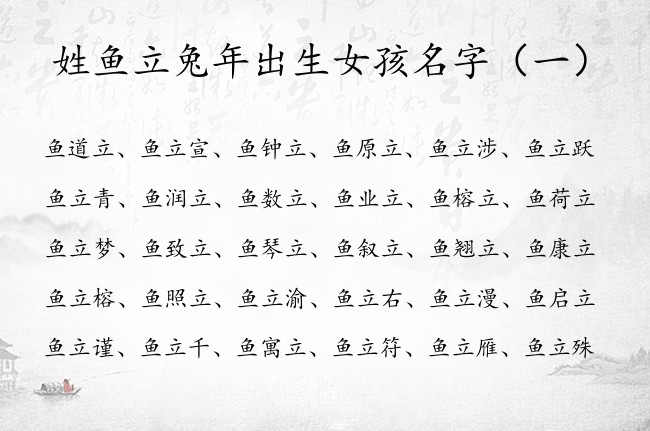 姓鱼立兔年出生女孩名字（一）
鱼道立、鱼立宣、鱼钟立、鱼原立、鱼立涉、鱼立跃
鱼立青、鱼润立、鱼数立、鱼业立、鱼榕立、鱼荷立
鱼立梦、鱼致立、鱼琴立、鱼叙立、鱼翘立、鱼康立
鱼立榕、鱼照立、鱼立渝、鱼立右、鱼立漫、鱼启立
鱼立谨、鱼立千、鱼寓立、鱼立符、鱼立雁、鱼立殊